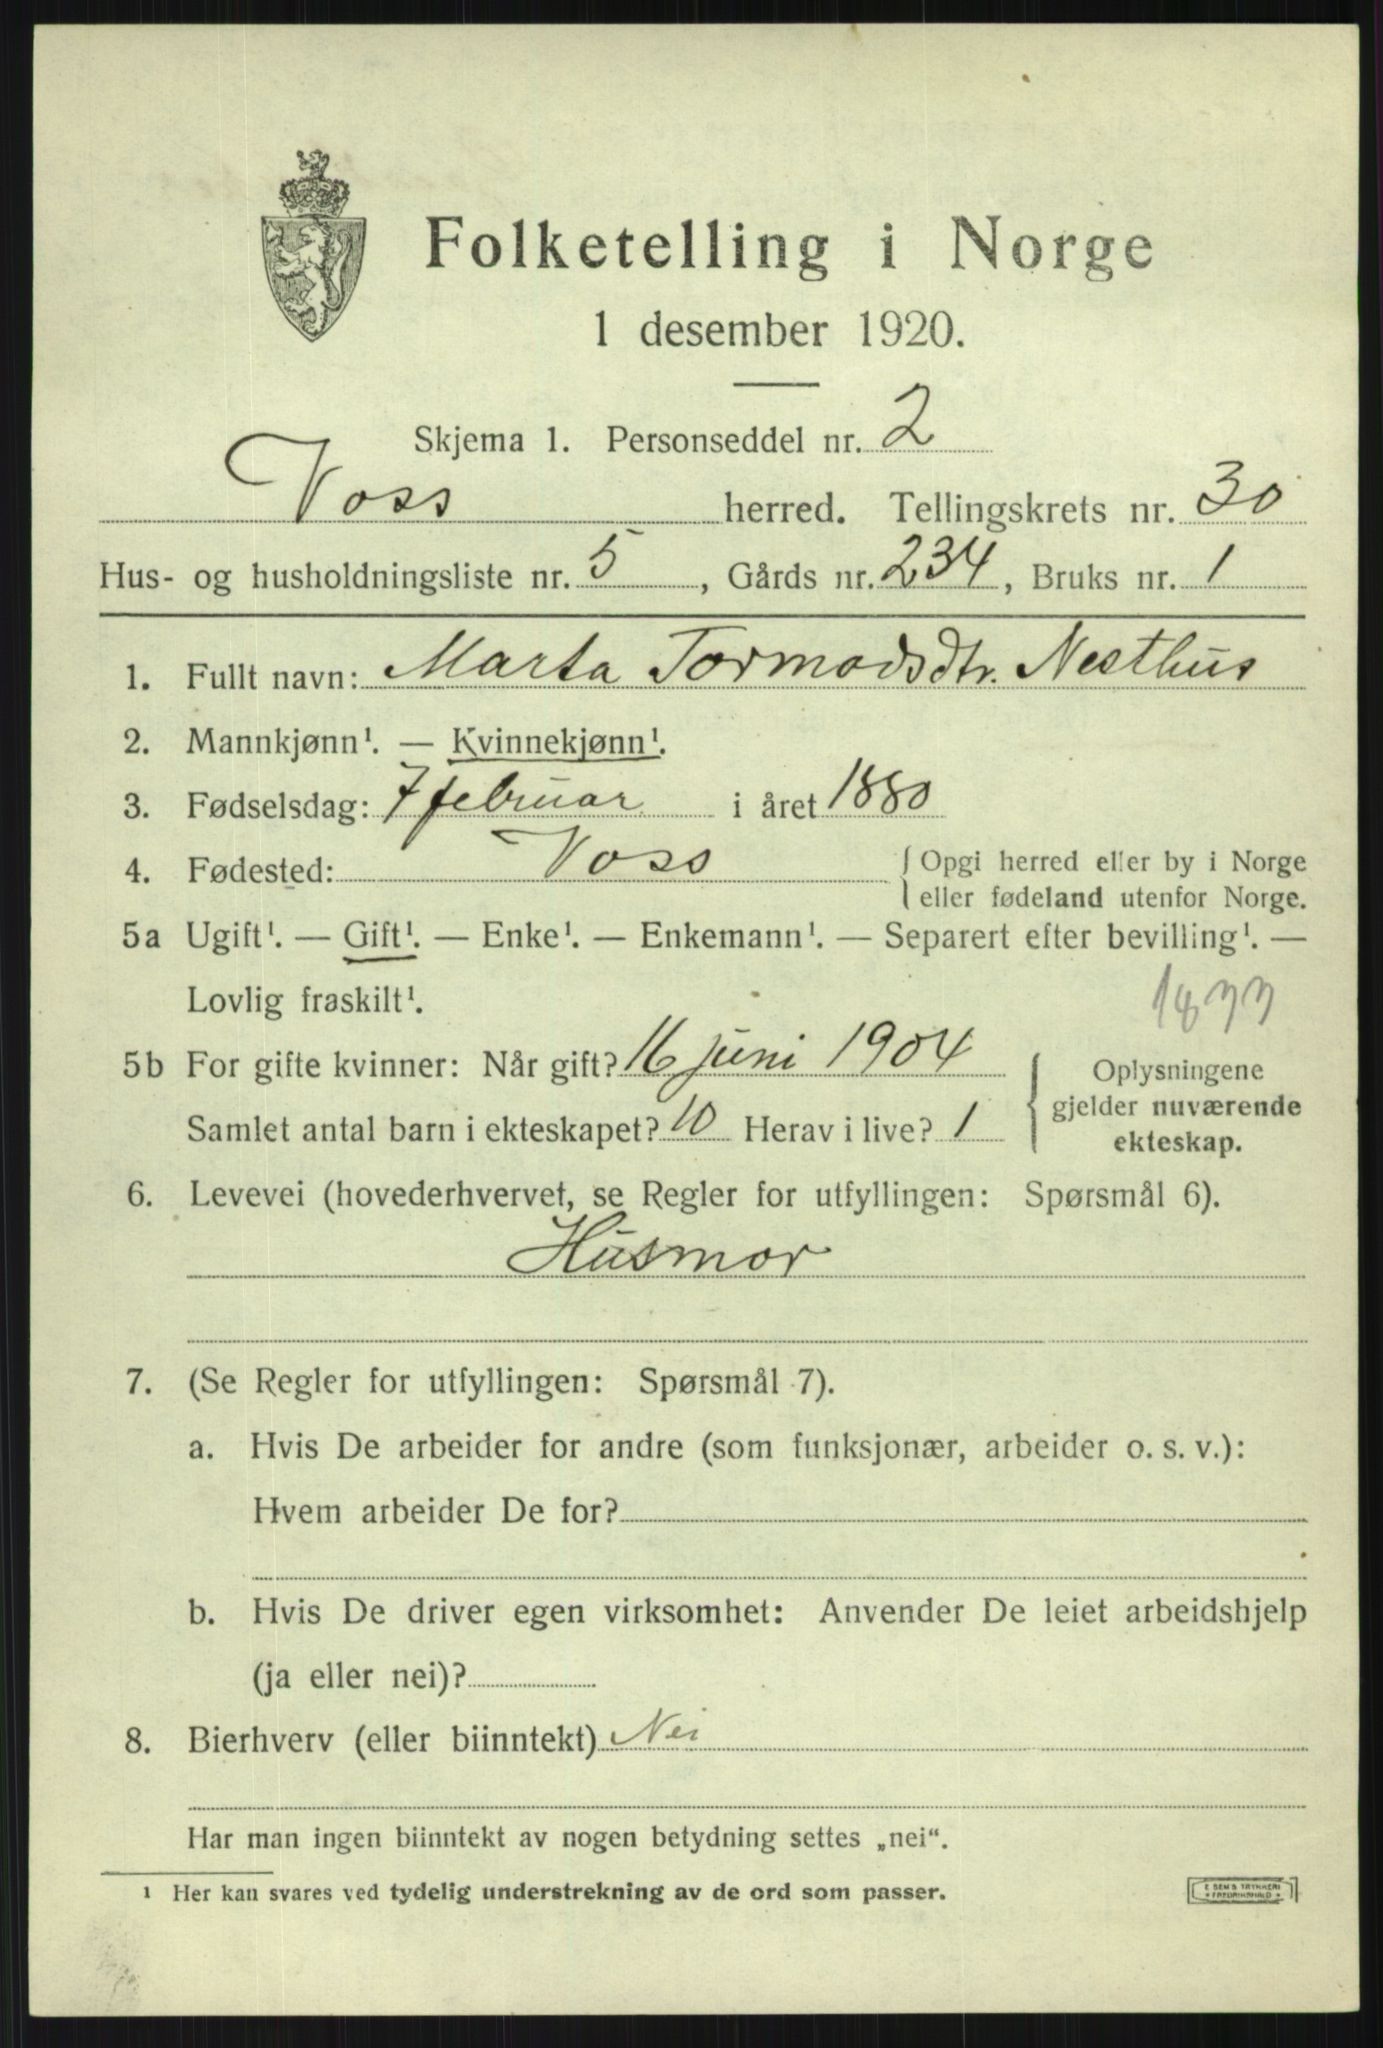 Folketelling i Norge
1 desember 1920.
Skjema 1. Personseddel nr. 2
Voss herred. Tellingskrets nr. 30
Hus- og husholdningsliste nr. 5, Gårds nr. 234, Bruks nr. 1
1. Fullt navn: Marta Tormodsdtr. Nesthus
2. Mannkjønn¹. — Kvinnekjønn¹.
3. Fødselsdag: 7 februar i året 1880
4. Fødested: Voss { Opgi herred eller by i Norge
eller fødeland utenfor Norge.
5a Ugift¹. — Gift¹. — Enke¹. — Enkemann¹. — Separert efter bevilling¹. —
Lovlig fraskilt¹.
5b For gifte kvinner: Når gift? 16 juni 1904
Samlet antal barn i ekteskapet? 10 Herav i live? 1
{ Oplysningene
gjelder nuværende
ekteskap.
6. Levevei (hovederhvervet, se Regler for utfyllingen: Spørsmål 6).
Husmor
7. (Se Regler for utfyllingen: Spørsmål 7).
a. Hvis De arbeider for andre (som funksjonær, arbeider o. s. v.):
Hvem arbeider De for?
b. Hvis De driver egen virksomhet: Anvender De leiet arbeidshjelp
(ja eller nei)?
8. Bierhverv (eller biinntekt) Nei
Har man ingen biinntekt av nogen betydning settes „nei“.
¹ Her kan svares ved tydelig understrekning av de ord som passer.
E SEM'S TRYKKERI
FREDRIKSHALD